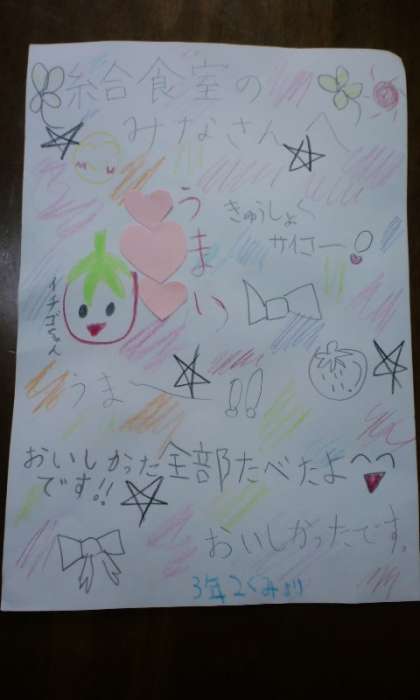 給食室の
みなさんへ
うまい
きゅうしょく
サイコー!
イチゴちゃん
うまーい
おいしかった
です!!
全部たべたよ
おいしかったです。
3年2くみより